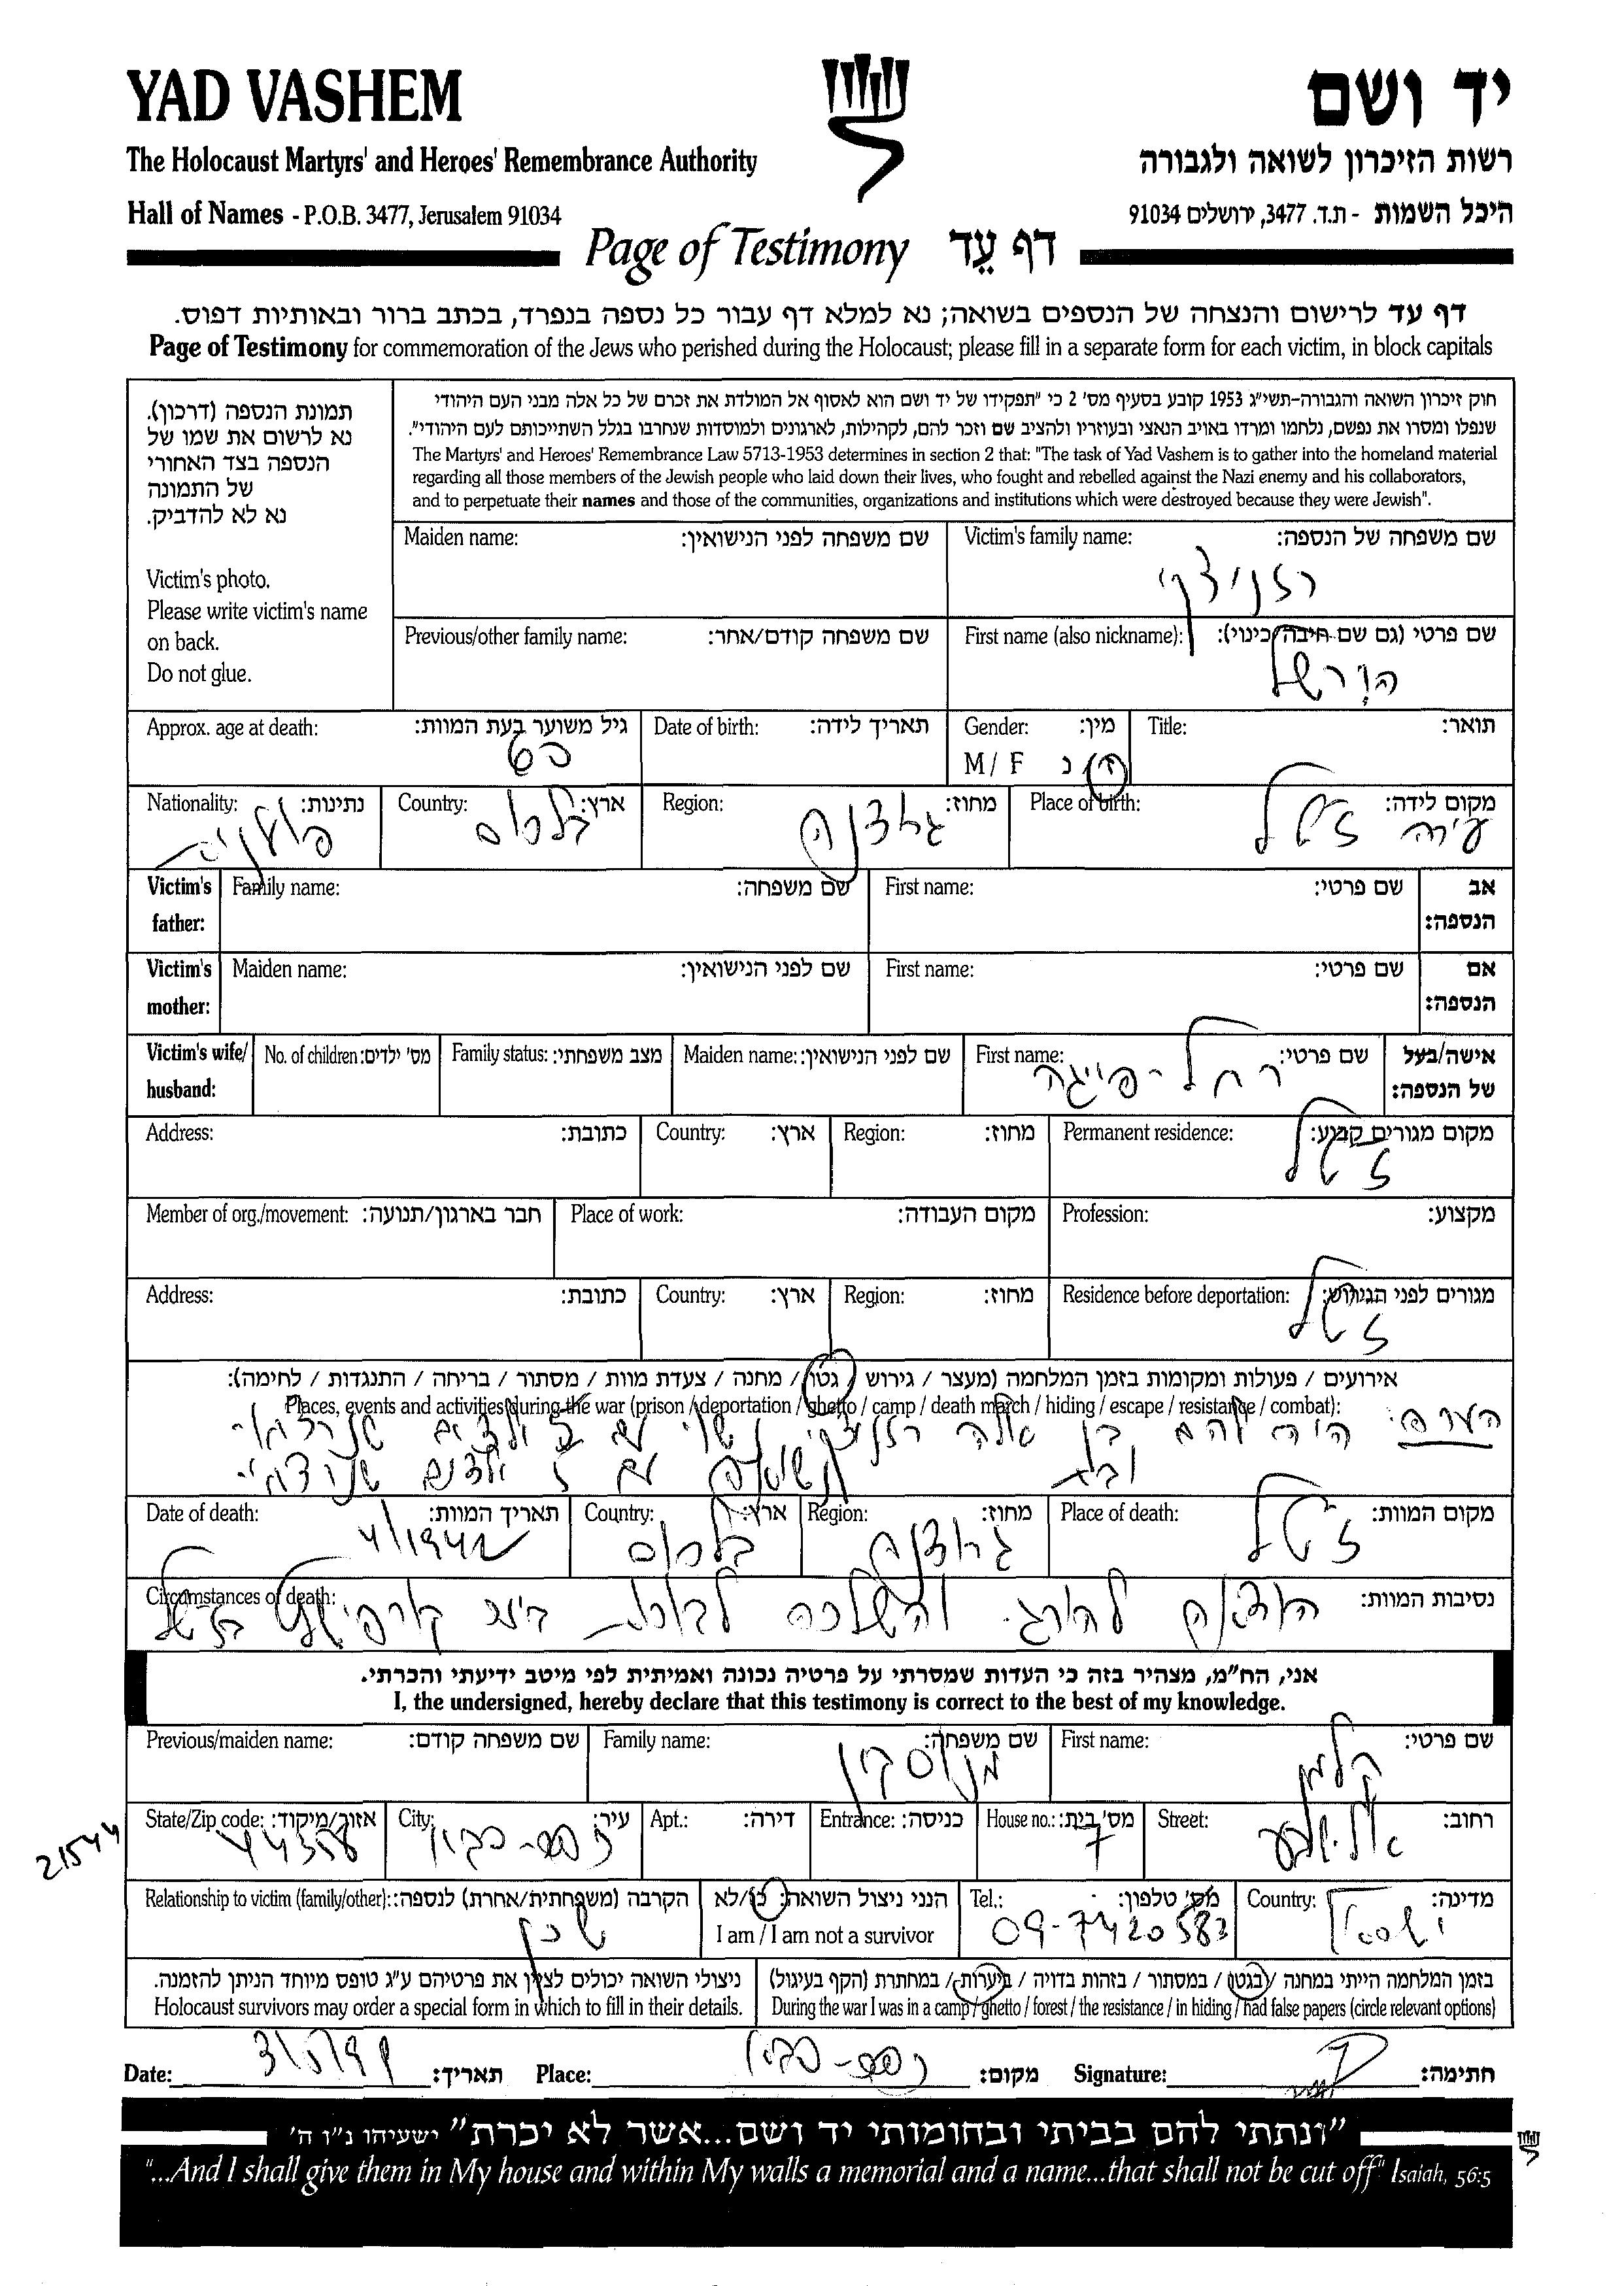 YAD VASHEM
יד ושם
The Holocaust Martyrs' and Heroes' Remembrance Authority
רשות הזיכרון לשואה ולגבורה
Hall of Names - P.O.B. 3477, Jerusalem 91034
היכל השמות - ת.ד. 3477, ירושלים 91034
Page of Testimony דף עֵד
דף עד לרישום והנצחה של הנספים בשואה; נא למלא דף עבור כל נספה בנפרד, בכתב ברור ובאותיות דפוס.
Page of Testimony for commemoration of the Jews who perished during the Holocaust; please fill in a separate form for each victim, in block capitals
תמונת הנספה (דרכון).
נא לרשום את שמו של
הנספה בצד האחורי
של התמונה
נא לא להדביק.
Victim's photo.
Please write victim's name
on back.
Do not glue.
חוק זיכרון השואה והגבורה-תשי"ג 1953 קובע בסעיף מס' 2 כי "תפקידו של יד ושם הוא לאסוף אל המולדת את זכרם של כל אלה מבני העם היהודי
שנפלו ומסרו את נפשם, נלחמו ומרדו באויב הנאצי ובעוזריו ולהציב שם וזכר להם, לקהילות, לארגונים ולמוסדות שנחרבו בגלל השתייכותם לעם היהודי".
The Martyrs' and Heroes' Remembrance Law 5713-1953 determines in section 2 that: "The task of Yad Vashem is to gather into the homeland material
regarding all those members of the Jewish people who laid down their lives, who fought and rebelled against the Nazi enemy and his collaborators,
and to perpetuate their names and those of the communities, organizations and institutions which were destroyed because they were Jewish".
Maiden name: שם משפחה לפני הנישואין:
Victim's family name: שם משפחה של הנספה:
רזניצקי
Previous/other family name: שם משפחה קודם/אחר:
First name (also nickname): שם פרטי (גם שם חיבה/כינוי):
הירשל
Approx. age at death: גיל משוער בעת המוות:
Date of birth: תאריך לידה:
Gender: מין:
M / F ז / נ
Title: תואר:
Nationality: נתינות:
פולנית
Country: ארץ:
בלרוס
Region: מחוז:
גרודנה
Place of birth: מקום לידה:
עירה ז'טל
Victim's father: Family name: שם משפחה: First name: שם פרטי: אב הנספה:
Victim's mother: Maiden name: שם לפני הנישואין: First name: שם פרטי: אם הנספה:
Victim's wife/ husband: No. of children: מס' ילדים: Family status: מצב משפחתי: Maiden name: שם לפני הנישואין: First name: שם פרטי: אישה/בעל של הנספה:
רחל - פייגה
Address: כתובת: Country: ארץ: Region: מחוז: Permanent residence: מקום מגורים קבוע:
ז'טל
Member of org./movement: חבר בארגון/תנועה: Place of work: מקום העבודה: Profession: מקצוע:
Address: כתובת: Country: ארץ: Region: מחוז: Residence before deportation: מגורים לפני הגירוש:
ז'טל
אירועים / פעולות ומקומות בזמן המלחמה (מעצר / גירוש / גטו / מחנה / צעדת מוות / מסתור / בריחה / התנגדות / לחימה):
Places, events and activities during the war (prison / deportation / ghetto / camp / death march / hiding / escape / resistance / combat):
הערה: היה להם בן אלה רזניצקי נשוי עם 2 ילדים שנרצחו
ובת נשואה עם 2 ילדים שנרצחו
Date of death: תאריך המוות: Country: ארץ: Region: מחוז: Place of death: מקום המוות:
1942 בלרוס גרודנה ז'טל
Circumstances of death: נסיבות המוות:
הוצאה להורג והשלכה לבור
אני, הח"מ, מצהיר בזה כי העדות שמסרתי על פרטיה נכונה ואמיתית לפי מיטב ידיעתי והכרתי.
I, the undersigned, hereby declare that this testimony is correct to the best of my knowledge.
Previous/maiden name: שם משפחה קודם: Family name: שם משפחה: First name: שם פרטי:
קלמן
State/Zip code: אזור/מיקוד: City: עיר: Apt.: דירה: Entrance: כניסה: House no.: מס' בית: Street: רחוב:
21544 44358 כפר-סבא 7
Relationship to victim (family/other): הקרבה (משפחתית/אחרת) לנספה:
שכן
הנני ניצול השואה: כן/לא
I am / I am not a survivor
Tel.: מס' טלפון:
09-7420583
Country: מדינה:
ישראל
ניצולי השואה יכולים לציין את פרטיהם ע"ג טופס מיוחד הניתן להזמנה.
Holocaust survivors may order a special form in which to fill in their details.
בזמן המלחמה הייתי במחנה / בגטו / במסתור / בזהות בדויה / ביערות / במחתרת (הקף בעיגול)
During the war I was in a camp / ghetto / forest / the resistance / in hiding / had false papers (circle relevant options)
Date: 3/5/99 תאריך: Place: כפר-סבא מקום: Signature: חתימה:
"ונתתי להם בביתי ובחומותי יד ושם...אשר לא יכרת" ישעיהו נ"ו ה'
"...And I shall give them in My house and within My walls a memorial and a name...that shall not be cut off" Isaiah, 56:5